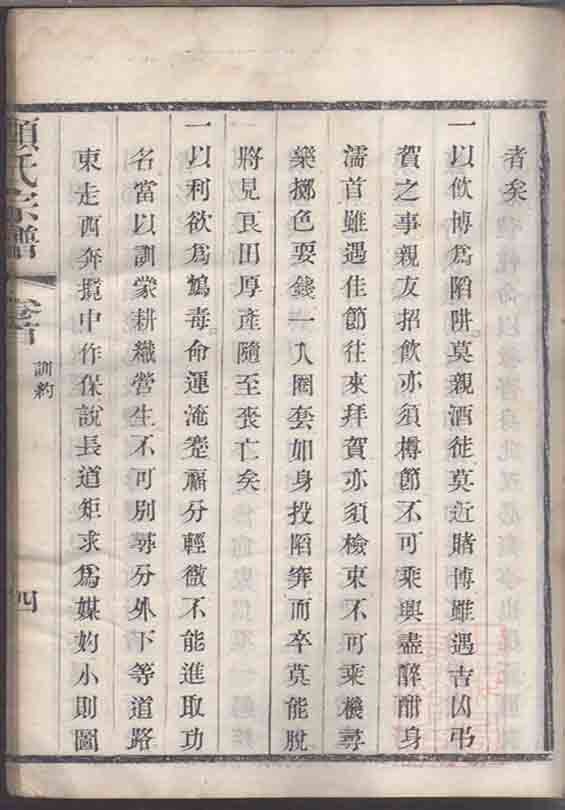 者矣
一以飲博爲陷阱莫親酒徒莫近賭博雖遇吉凶弔
賀之事親友招飲亦須樽節不可乘興盡醉酣身
濡首雖遇佳節往來拜賀亦須檢束不可乘機尋
樂擲色耍錢一入圈套如身投陷穽而卒莫能脫
將見良田厚產隨至喪亡矣
一以利欲爲鴆毒命運淹蹇福分輕微不能進取功
名當以訓蒙耕織營生不可別尋分外下等道路
東走西奔攬中作保說長道短求爲媒妁小則圖
顧氏宗譜
卷首
訓約
四